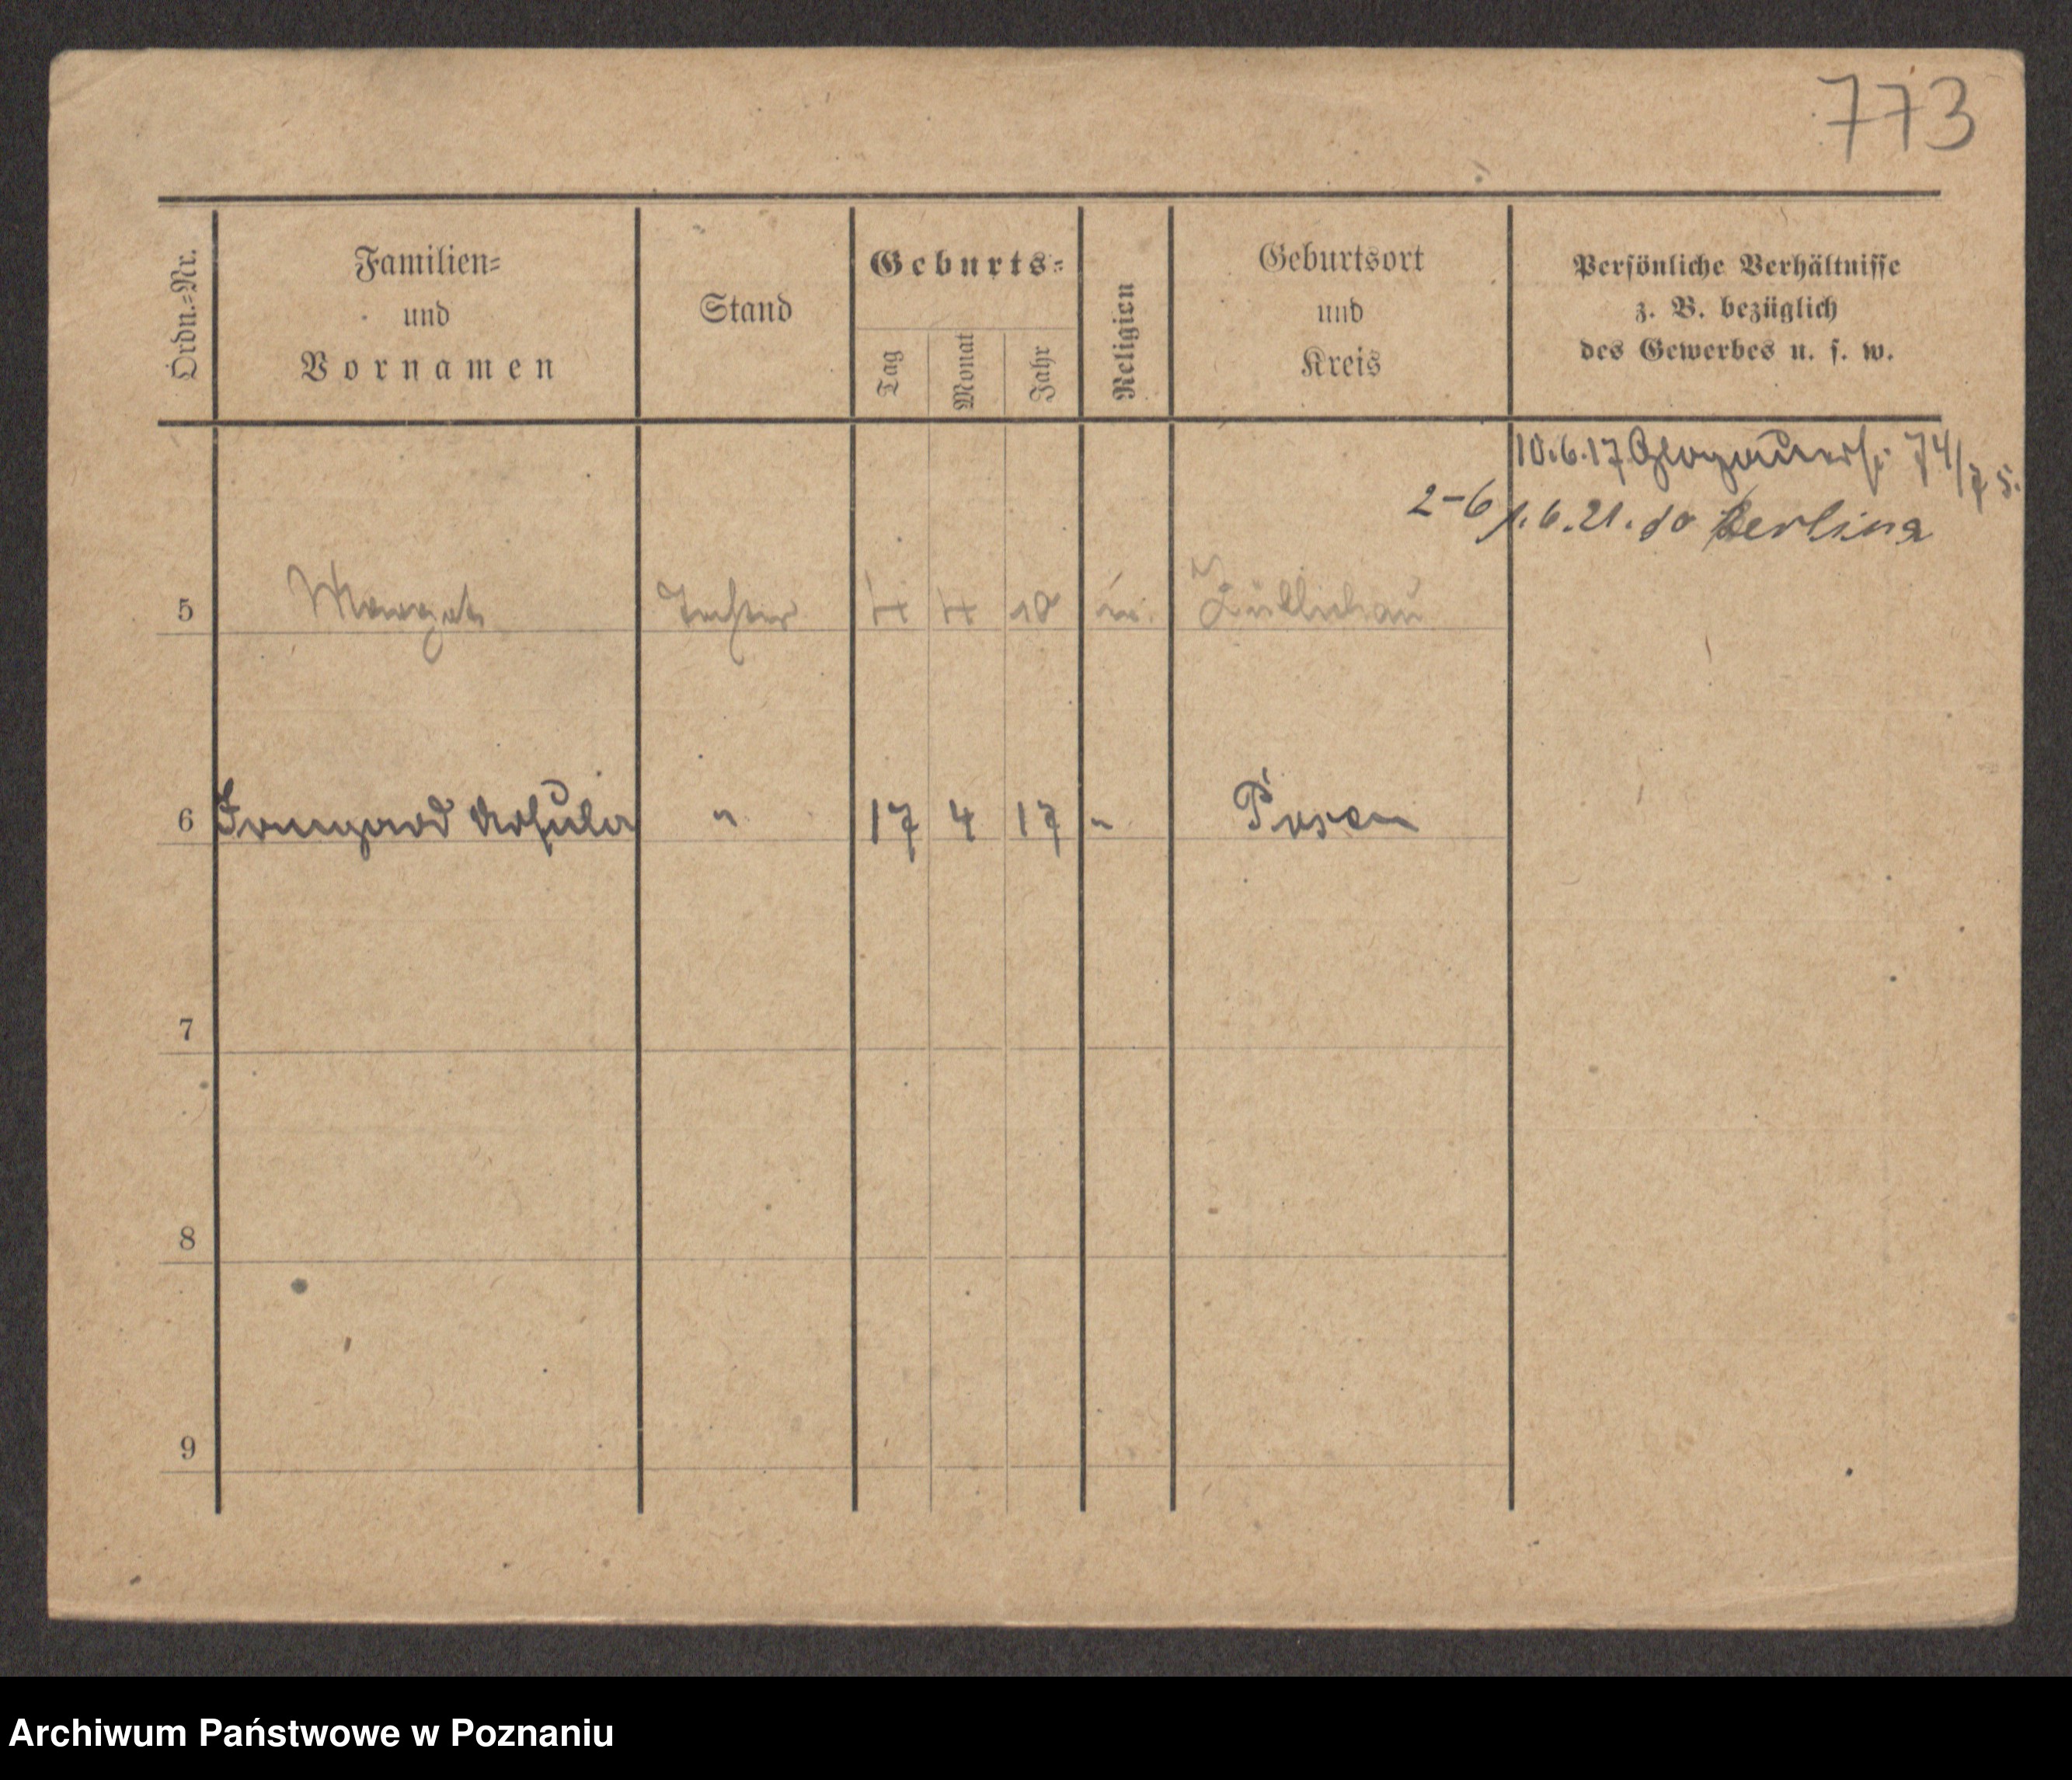 773
Ordn.-Nr.
Familien-
und
Vornamen
Stand
Geburts-
Tag
Monat
Jahr
Religion
Geburtsort
und
Kreis
Persönliche Verhältnisse
z. B. bezüglich
des Gewerbes u. s. w.
10.6.17 Glogauerstr. 74/75.
2-6 1.6.21. do Berlina
5 Margot Tochter 4 4 10 Züllichau
6 Irmgard Ursula " 17 4 17 " Posen
7
8
9
Archiwum Państwowe w Poznaniu